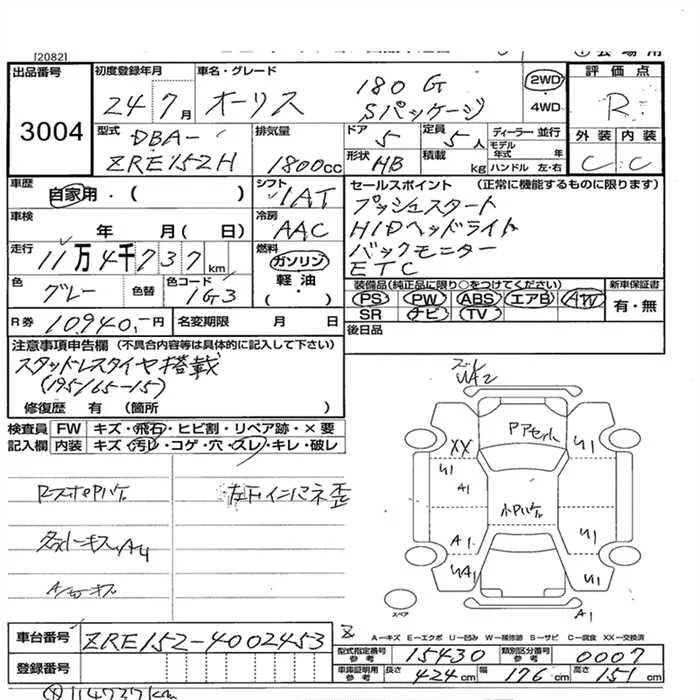 [2082]
出品番号
3004
初度登録年月
24年7月
車名・グレード
オーリス
180 G
Sパッケージ
2WD
4WD
評価点
R
外装 内装
C C
型式
DBA-
ZRE152H
排気量
1800cc
ドア
5
定員
5人
ディーラー・並行
モデル
年式 年
形状
HB
積載
kg
ハンドル 左・右
車歴
自家用・( )
シフト
IAT
セールスポイント (正常に機能するものに限ります)
プッシュスタート
HIDヘッドライト
バックモニター
ETC
車検
年 月(日)
冷房
AAC
走行
11万4千737km
燃料
ガソリン
軽油
( ・ )
色
グレー
色替
色コード
1G3
装備品(純正品に限り○をつけてください)
PS PW ABS エアB AW
SR ナビ TV
新車保証書
有・無
R券 10,940.-円
名変期限 月 日
後日品
注意事項申告欄 (不具合内容等は具体的に記入して下さい)
スタッドレスタイヤ搭載
(195/65-15)
修復歴 有(箇所 )
検査員
記入欄
FW キズ・飛石・ヒビ割・リペア跡・×要
内装 キズ・汚レ・コゲ・穴・スレ・キレ・破レ
WA2
XX
U1
A1
U1
A1
U1
A1
U1
スペア
車台番号
ZRE152-4002453
登録番号
A-キズ E-エクボ U-凹み W-補修跡 S-サビ C-腐食 XX-交換済
型式指定番号
参考
15430
類別区分番号
参考
0007
車庫証明用
参考
長さ 424cm 幅 176cm 高さ 151cm
114737km